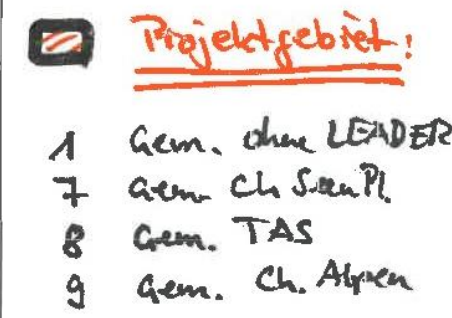 Projektgebiet:
1 Gem. ohne LEADER
7 Gem. Ch SeenPl.
8 Gem. TAS
9 Gem. Ch. Alpen